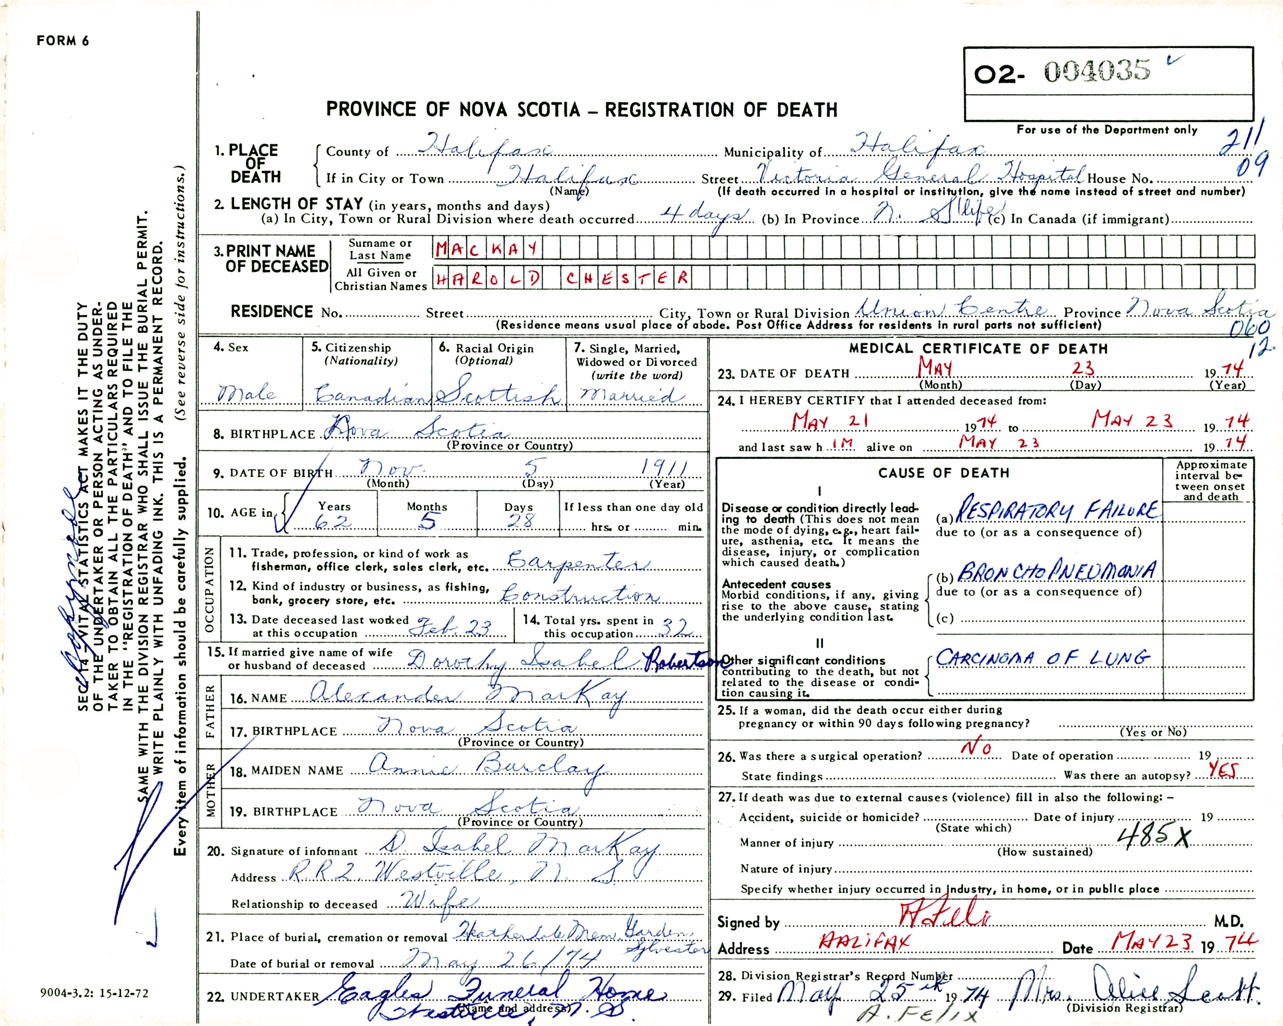 FORM 6
O2- 004035
PROVINCE OF NOVA SCOTIA – REGISTRATION OF DEATH
For use of the Department only
211
09
1. PLACE OF DEATH
County of Halifax Municipality of Halifax
If in City or Town Halifax Street Victoria General Hospital House No.
(Name) (If death occurred in a hospital or institution, give the name instead of street and number)
2. LENGTH OF STAY (in years, months and days)
(a) In City, Town or Rural Division where death occurred 4 days (b) In Province N. S life (c) In Canada (if immigrant)
3. PRINT NAME OF DECEASED
Surname or Last Name MACKAY
All Given or Christian Names HAROLD CHESTER
RESIDENCE No. Street City, Town or Rural Division Union Centre Province Nova Scotia
(Residence means usual place of abode. Post Office Address for residents in rural parts not sufficient)
060
12
4. Sex
Male
5. Citizenship
(Nationality)
Canadian
6. Racial Origin
(Optional)
Scottish
7. Single, Married,
Widowed or Divorced
(write the word)
Married
8. BIRTHPLACE Nova Scotia
(Province or Country)
9. DATE OF BIRTH Nov. 5 1911
(Month) (Day) (Year)
10. AGE in
Years Months Days If less than one day old
62 5 28 hrs. or min.
OCCUPATION
11. Trade, profession, or kind of work as
fisherman, office clerk, sales clerk, etc. Carpenter
12. Kind of industry or business, as fishing,
bank, grocery store, etc. Construction
13. Date deceased last worked
at this occupation Feb. 23
14. Total yrs. spent in
this occupation 32
15. If married give name of wife
or husband of deceased Dorothy Isabel Robertson
FATHER
16. NAME Alexander MacKay
17. BIRTHPLACE Nova Scotia
(Province or Country)
MOTHER
18. MAIDEN NAME Annie Barclay
19. BIRTHPLACE Nova Scotia
(Province or Country)
20. Signature of informant D. Isabel MacKay
Address R R 2. Westville, N. S
Relationship to deceased Wife
21. Place of burial, cremation or removal Heatherdale Mem. Gardens
Sylvester
Date of burial or removal May 26/74
22. UNDERTAKER Eagles Funeral Home
(Name and address)
Westville, N. S.
MEDICAL CERTIFICATE OF DEATH
23. DATE OF DEATH MAY 23 1974
(Month) (Day) (Year)
24. I HEREBY CERTIFY that I attended deceased from:
MAY 21 1974 to MAY 23 1974
and last saw h IM alive on MAY 23 1974
CAUSE OF DEATH
Approximate
interval be-
tween onset
and death
I
Disease or condition directly lead-
ing to death (This does not mean
the mode of dying, e.g., heart fail-
ure, asthenia, etc. It means the
disease, injury, or complication
which caused death.)
(a) RESPIRATORY FAILURE
due to (or as a consequence of)
Antecedent causes
Morbid conditions, if any, giving
rise to the above cause, stating
the underlying condition last.
(b) BRONCHOPNEUMONIA
due to (or as a consequence of)
(c)
II
Other significant conditions
contributing to the death, but not
related to the disease or condi-
tion causing it.
CARCINOMA OF LUNG
25. If a woman, did the death occur either during
pregnancy or within 90 days following pregnancy?
(Yes or No)
26. Was there a surgical operation? No Date of operation 19
State findings Was there an autopsy? YES
27. If death was due to external causes (violence) fill in also the following: –
Accident, suicide or homicide? Date of injury 19
(State which)
485X
Manner of injury
(How sustained)
Nature of injury
Specify whether injury occurred in Industry, in home, or in public place
Signed by A Felix M.D.
Address HALIFAX Date MAY 23 1974
28. Division Registrar's Record Number
29. Filed May 25th 1974 Mrs. Alice Scott.
(Division Registrar)
A. FELIX
SEC. 14 – VITAL STATISTICS ACT MAKES IT THE DUTY
OF THE UNDERTAKER OR PERSON ACTING AS UNDER-
TAKER TO OBTAIN ALL THE PARTICULARS REQUIRED
IN THE "REGISTRATION OF DEATH" AND TO FILE THE
SAME WITH THE DIVISION REGISTRAR WHO SHALL ISSUE THE BURIAL PERMIT.
WRITE PLAINLY WITH UNFADING INK. THIS IS A PERMANENT RECORD.
Every item of information should be carefully supplied. (See reverse side for instructions.)
9004-3.2: 15-12-72